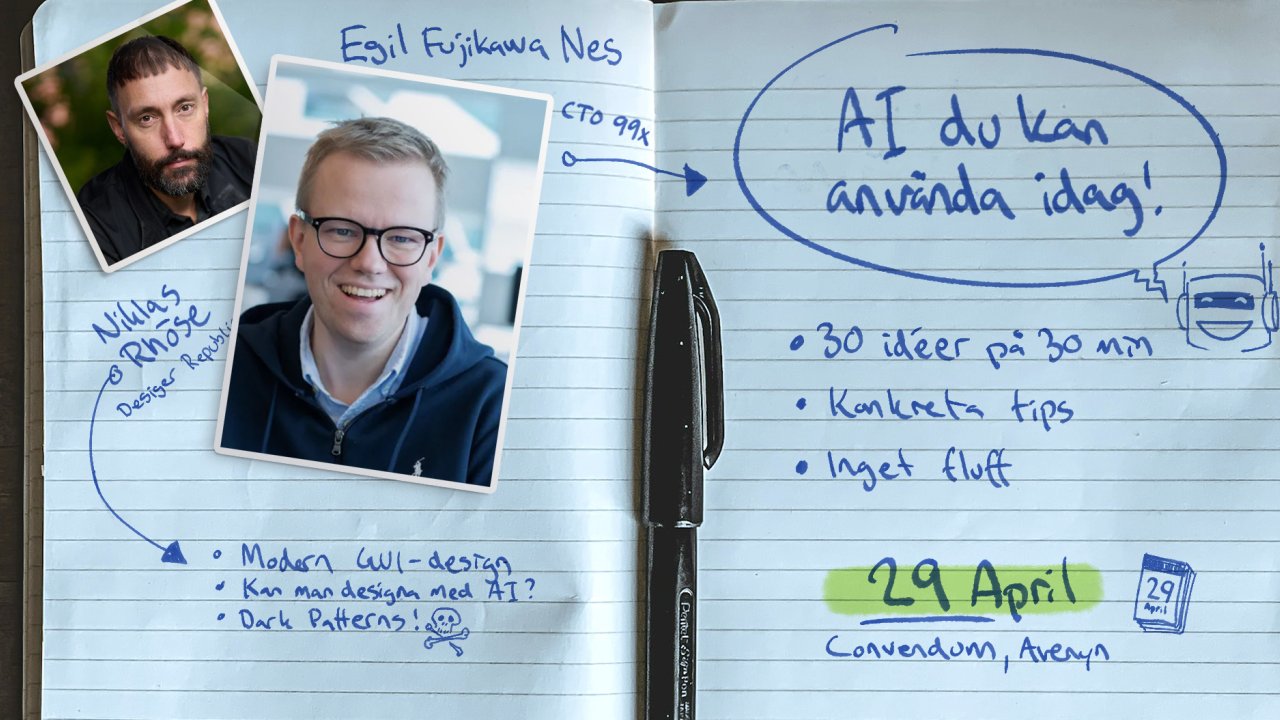 Egil Fujikawa Nes
CTO 99x
Niklas
Rhöse
Desiger Republic
• Modern GUI-design
• Kan man designa med AI?
• Dark Patterns!
AI du kan
använda idag!
• 30 idéer på 30 min
• Konkreta tips
• Inget fluff
29 April
Convendum, Avenyn
29
April
Pentel Sign Pen